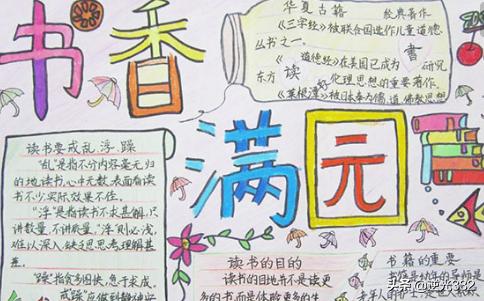 书香
满元
华夏古籍 经典著作
《三字经》被联合国选作儿童道德
丛书之一。
《道德经》在美国已成为 書 研究
东方 读 好 伦理思想的重要著作。
《菜根谭》被日本奉为儒、道、佛教思想
读书要戒乱、浮、躁
“乱”是指不分内容毫无归
的地读书,心中无数,表面看读
书不少,实际效果不佳。
“浮”是指读书不求甚解,只
讲数量,不讲质量,“浮”则必浅,
难以深入,缺乏思考,理解甚
差。
“躁”指贪多图快,急于求成,
戒“躁”应做到静
读书的目的
读书的目地并不是读更
多的书,而是体验更多的
书籍的重要
书籍是幼年的导师是
老年人的
头条